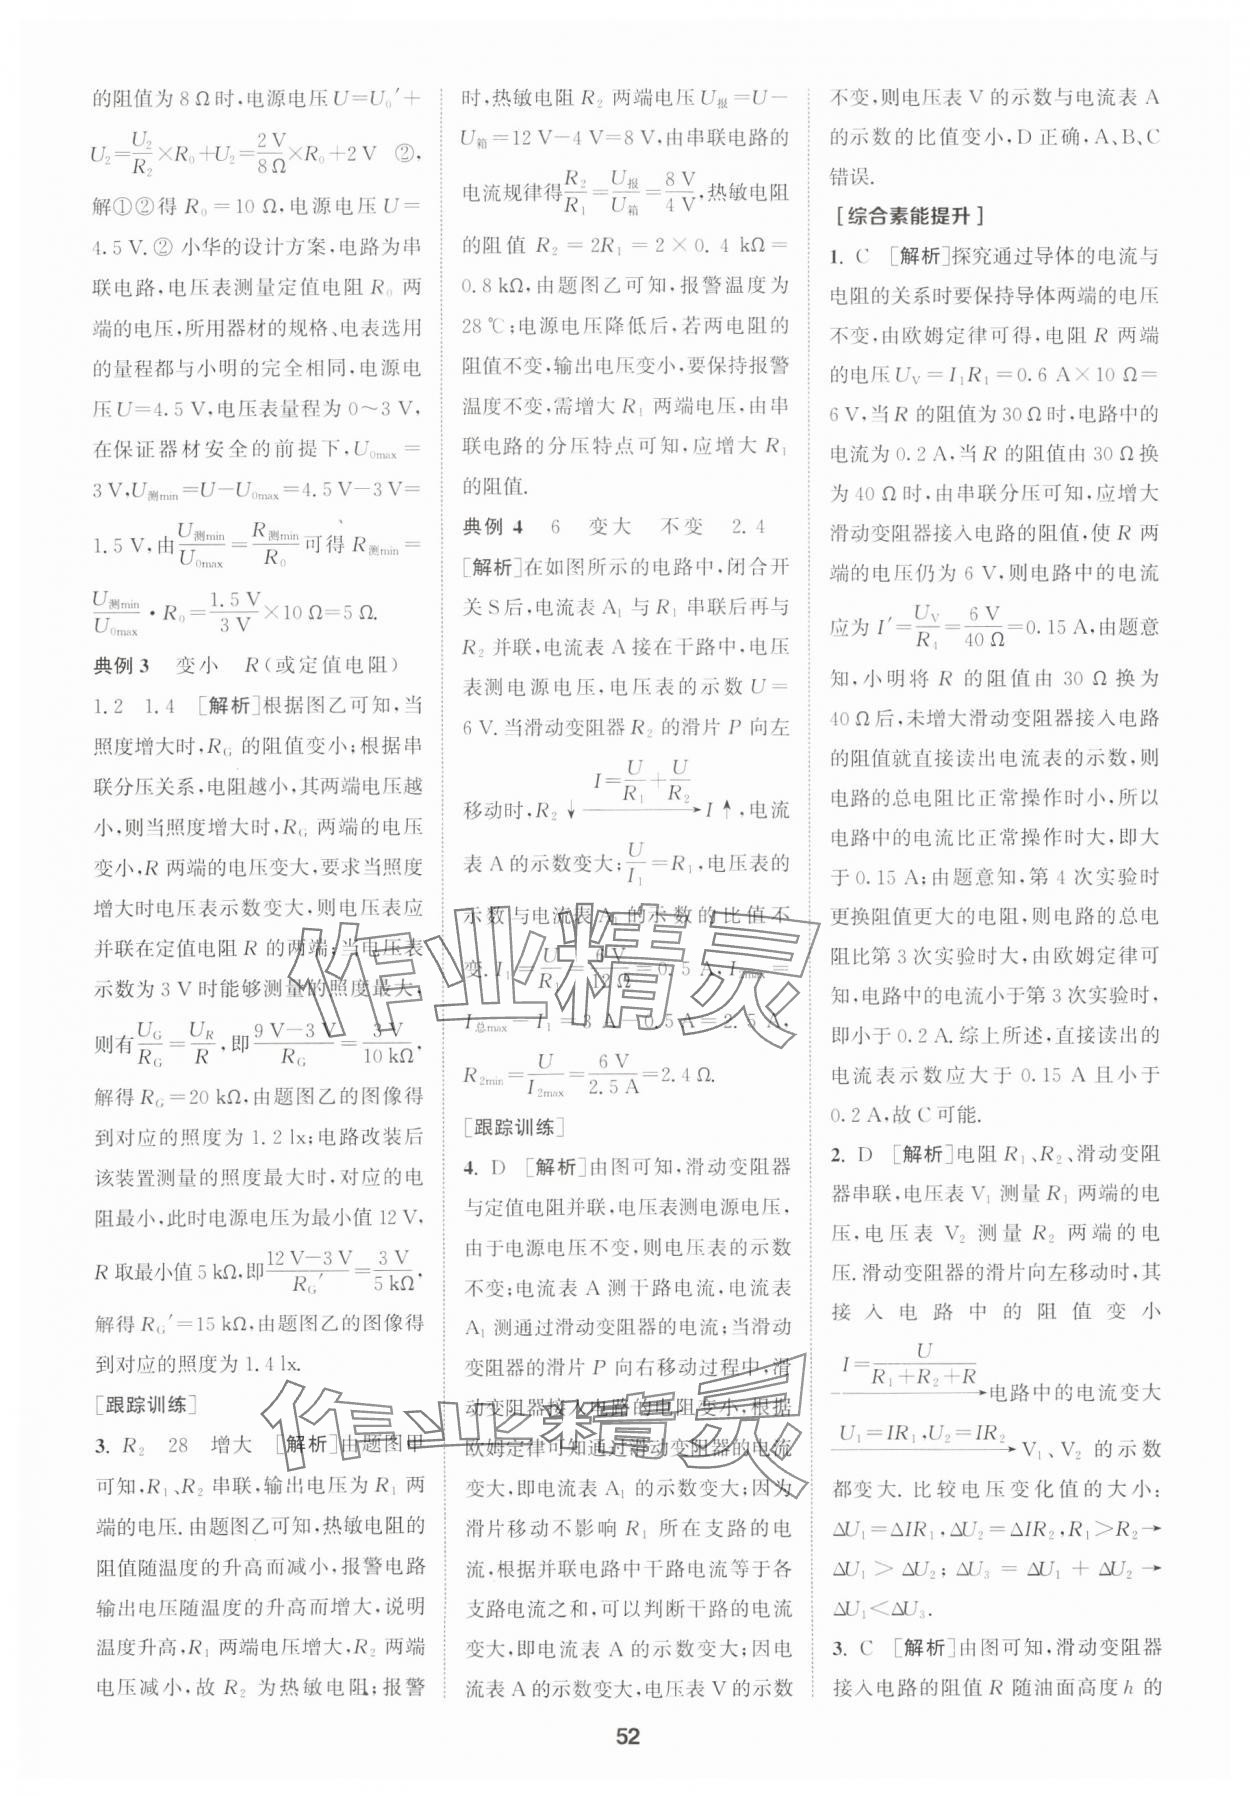 的阻值为 8 Ω 时,电源电压 U=U₀′+
U₂=U₂/R₂×R₀+U₂=2 V/8 Ω×R₀+2 V ②,
解①②得 R₀=10 Ω,电源电压 U=
4.5 V.② 小华的设计方案,电路为串
联电路,电压表测量定值电阻 R₀ 两
端的电压,所用器材的规格、电表选用
的量程都与小明的完全相同,电源电
压 U=4.5 V,电压表量程为 0～3 V,
在保证器材安全的前提下,U₀max=
3 V,U测min=U-U₀max=4.5 V-3 V=
1.5 V,由U测min/U₀max=R测min/R₀可得 R测min=
U测min/U₀max·R₀=1.5 V/3 V×10 Ω=5 Ω.
典例 3 变小 R(或定值电阻)
1.2 1.4 [解析]根据图乙可知,当
照度增大时,RG 的阻值变小;根据串
联分压关系,电阻越小,其两端电压越
小,则当照度增大时,RG 两端的电压
变小,R 两端的电压变大,要求当照度
增大时电压表示数变大,则电压表应
并联在定值电阻 R 的两端;当电压表
示数为 3 V 时能够测量的照度最大,
则有UG/RG=UR/R,即(9 V-3 V)/RG=3 V/10 kΩ,
解得 RG=20 kΩ,由题图乙的图像得
到对应的照度为 1.2 lx;电路改装后
该装置测量的照度最大时,对应的电
阻最小,此时电源电压为最小值 12 V,
R 取最小值 5 kΩ,即(12 V-3 V)/RG′=3 V/5 kΩ,
解得 RG′=15 kΩ,由题图乙的图像得
到对应的照度为 1.4 lx.
[跟踪训练]
3. R₂ 28 增大 [解析]由题图甲
可知,R₁、R₂ 串联,输出电压为 R₁ 两
端的电压.由题图乙可知,热敏电阻的
阻值随温度的升高而减小,报警电路
输出电压随温度的升高而增大,说明
温度升高,R₁ 两端电压增大,R₂ 两端
电压减小,故 R₂ 为热敏电阻;报警
时,热敏电阻 R₂ 两端电压 U报=U-
U箱=12 V-4 V=8 V,由串联电路的
电流规律得R₂/R₁=U报/U箱=8 V/4 V,热敏电阻
的阻值 R₂=2R₁=2×0.4 kΩ=
0.8 kΩ,由题图乙可知,报警温度为
28 ℃;电源电压降低后,若两电阻的
阻值不变,输出电压变小,要保持报警
温度不变,需增大 R₁ 两端电压,由串
联电路的分压特点可知,应增大 R₁
的阻值.
典例 4 6 变大 不变 2.4
[解析]在如图所示的电路中,闭合开
关 S 后,电流表 A₁ 与 R₁ 串联后再与
R₂ 并联,电流表 A 接在干路中,电压
表测电源电压,电压表的示数 U=
6 V.当滑动变阻器 R₂ 的滑片 P 向左
移动时,R₂↓ I=U/R₁+U/R₂→I↑,电流
表 A 的示数变大;U/I₁=R₁,电压表的
示数与电流表 A₁ 的示数的比值不
变.I₁=U/R₁=6 V/12 Ω=0.5 A,I₂max=
I总max-I₁=3 A-0.5 A=2.5 A,
R₂min=U/I₂max=6 V/2.5 A=2.4 Ω.
[跟踪训练]
4. D [解析]由图可知,滑动变阻器
与定值电阻并联,电压表测电源电压,
由于电源电压不变,则电压表的示数
不变;电流表 A 测干路电流,电流表
A₁ 测通过滑动变阻器的电流;当滑动
变阻器的滑片 P 向右移动过程中,滑
动变阻器接入电路的电阻变小,根据
欧姆定律可知通过滑动变阻器的电流
变大,即电流表 A₁ 的示数变大;因为
滑片移动不影响 R₁ 所在支路的电
流,根据并联电路中干路电流等于各
支路电流之和,可以判断干路的电流
变大,即电流表 A 的示数变大;因电
流表 A 的示数变大,电压表 V 的示数
不变,则电压表 V 的示数与电流表 A
的示数的比值变小,D 正确,A、B、C
错误.
[综合素能提升]
1. C [解析]探究通过导体的电流与
电阻的关系时要保持导体两端的电压
不变,由欧姆定律可得,电阻 R 两端
的电压 UV=I₁R₁=0.6 A×10 Ω=
6 V,当 R 的阻值为 30 Ω 时,电路中的
电流为 0.2 A,当 R 的阻值由 30 Ω 换
为 40 Ω 时,由串联分压可知,应增大
滑动变阻器接入电路的阻值,使 R 两
端的电压仍为 6 V,则电路中的电流
应为 I′=UV/R₄=6 V/40 Ω=0.15 A,由题意
知,小明将 R 的阻值由 30 Ω 换为
40 Ω 后,未增大滑动变阻器接入电路
的阻值就直接读出电流表的示数,则
电路的总电阻比正常操作时小,所以
电路中的电流比正常操作时大,即大
于 0.15 A;由题意知,第 4 次实验时
更换阻值更大的电阻,则电路的总电
阻比第 3 次实验时大,由欧姆定律可
知,电路中的电流小于第 3 次实验时,
即小于 0.2 A.综上所述,直接读出的
电流表示数应大于 0.15 A 且小于
0.2 A,故 C 可能.
2. D [解析]电阻 R₁、R₂、滑动变阻
器串联,电压表 V₁ 测量 R₁ 两端的电
压,电压表 V₂ 测量 R₂ 两端的电
压.滑动变阻器的滑片向左移动时,其
接入电路中的阻值变小
I=U/(R₁+R₂+R)→电路中的电流变大
U₁=IR₁,U₂=IR₂→V₁、V₂ 的示数
都变大.比较电压变化值的大小:
ΔU₁=ΔIR₁,ΔU₂=ΔIR₂,R₁>R₂→
ΔU₁>ΔU₂;ΔU₃=ΔU₁+ΔU₂→
ΔU₁<ΔU₃.
3. C [解析]由图可知,滑动变阻器
接入电路的阻值 R 随油面高度 h 的
52
作业精灵
作业精灵